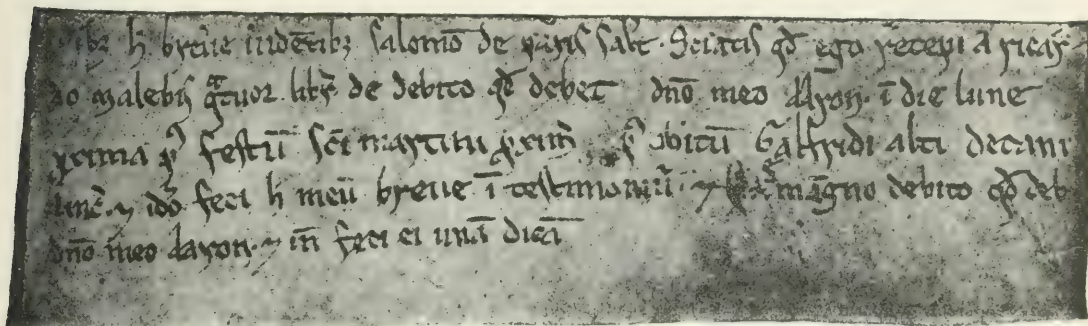 ibꝫ h̄ breue uidētibꝫ salomō de parisis salt̄. Sciatis qđ ego recepi a ricar
do malebis̄ qᵃtuor libr̄ de debito qđ debet dn̄o meo aaron. ī die lune
xima pꝰ festū sc̄i martini ꝓxim̄ pꝰ obitū Galfridi alti decani
⁊ ido̅ feci h̄ meū breue ī testimoniū. ⁊ magno debito qđ deb
dn̄o meo aaron. ⁊ in̄ feci ei unā dicā